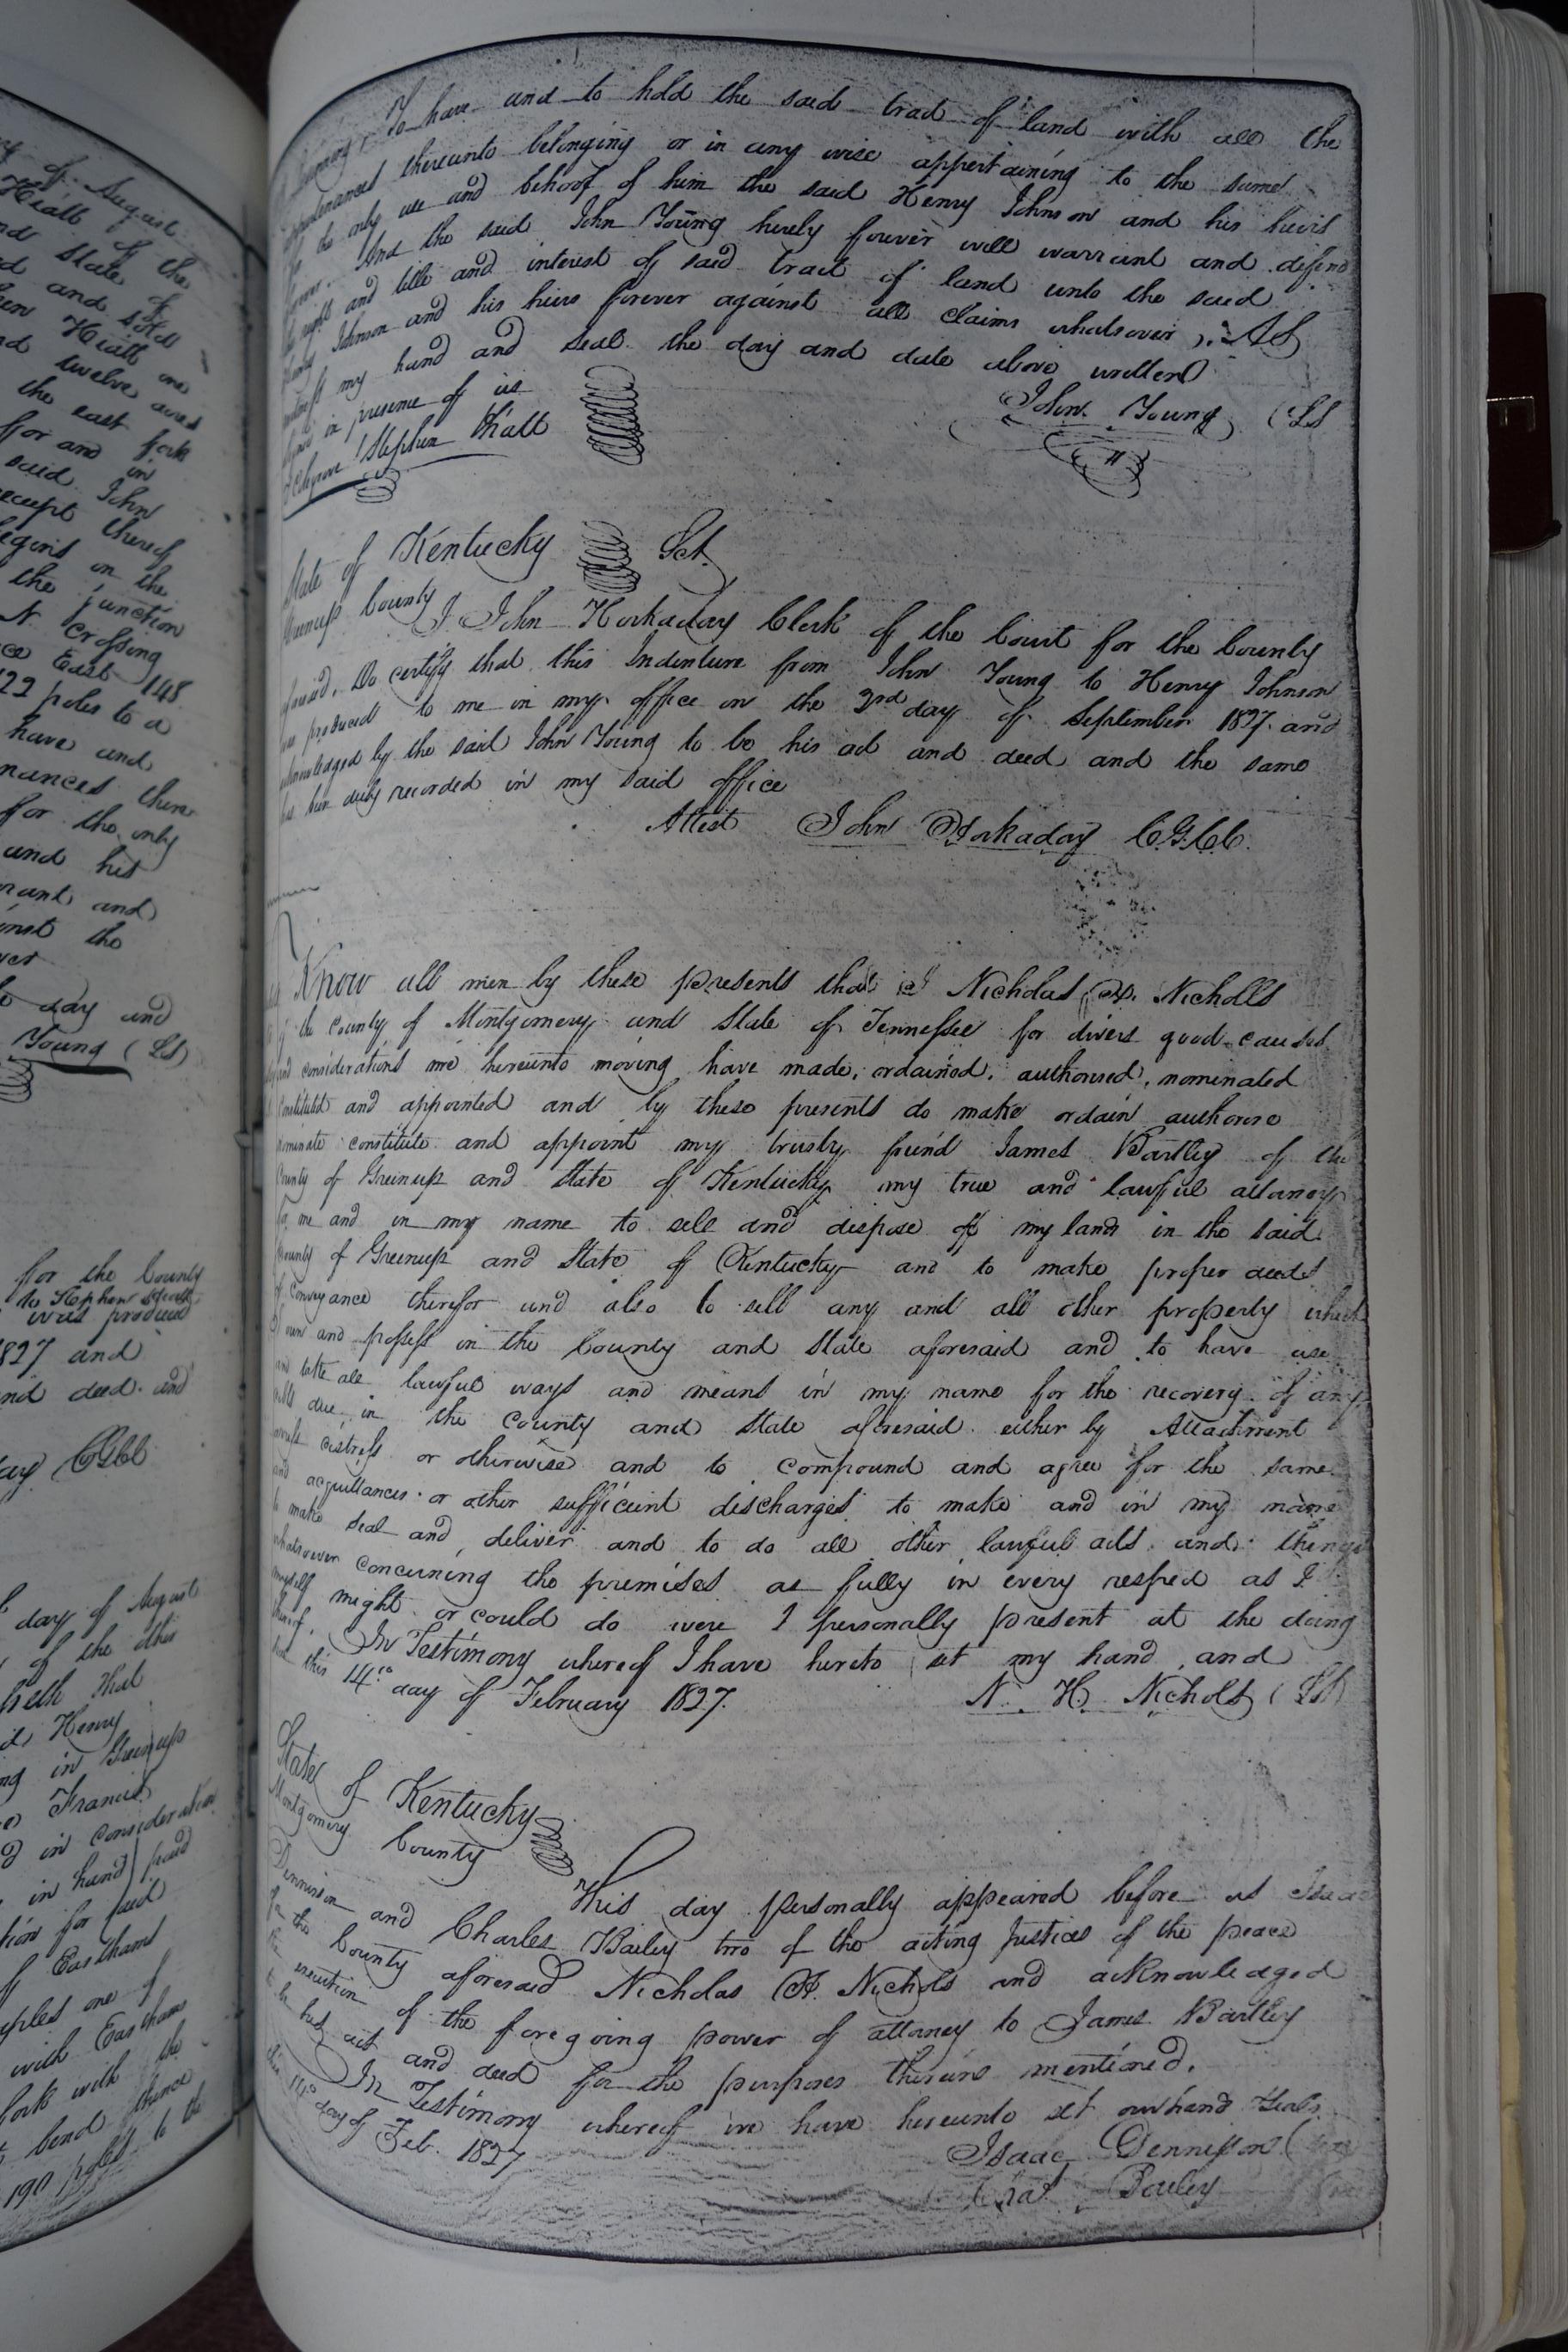 of August
Hiatt of the
and State of
and sold
Hiatt one
twelve acres
the east fork
for and in
said John
receipt thereof
begins on the
the junction
N. crossing
East 148
122 poles to a
have and
there
for the only
and his
and
against the
day and
Young (LS)
for the County
to Stephen Hiatt
was produced
1827 and
and deed and
CGCC
day of August
of the other
that
Henry
in Greenup
Francis
in consideration
in hand paid
for said
of Easthams
one of
with Easthams
fork with the
bend thence
190 poles to the
To have and to hold the said tract of land with all the
appurtenances thereunto belonging or in any wise appertaining to the same
for the only use and behoof of him the said Henry Johnson and his heirs
forever. And the said John Young hereby forever will warrant and defend
the right and title and interest of said tract of land unto the said
Henry Johnson and his heirs forever against all claims whatsover, As
witness my hand and seal the day and date above written
in presence of us
John Young (LS
Stephen Hiatt
State of Kentucky Sct.
Greenup County
I John Hockaday Clerk of the Court for the County
aforesaid, Do certify that this Indenture from John Young to Henry Johnson
was produced to me in my office on the 2nd day of September 1827. and
acknowledged by the said John Young to be his act and deed and the same
has been duly recorded in my said office
Attest John Hockaday C.G.C.C.
Know all men by these presents that I Nicholas H. Nicholls
of the county of Montgomery and State of Tennessee for divers good causes
and considerations me hereunto moving have made, ordained, authorised, nominated
constituted and appointed and by these presents do make ordain authorise
nominate constitute and appoint my trusty friend James Bartley of the
County of Greenup and State of Kentucky my true and lawful attorney
for me and in my name to sell and dispose of my land in the said
County of Greenup and State of Kentucky and to make proper deeds
of conveyance therefor and also to sell any and all other property which
I own and possess in the County and State aforesaid and to have use
and take all lawful ways and means in my name for the recovery of any
debts due in the County and State aforesaid either by Attachment
arrest distress or otherwise and to compound and agree for the same
and acquittances or other sufficient discharges to make and in my name
to make seal and deliver and to do all other lawful acts and things
whatsoever concerning the premises as fully in every respect as I
myself might or could do were I personally present at the doing
thereof. In Testimony whereof I have hereto set my hand and
seal this 14th day of February 1827. N. H. Nichols (LS)
State of Kentucky
Montgomery County
This day personally appeared before us Isaac
Dennison and Charles Bailey two of the acting Justices of the peace
for the County aforesaid Nicholas H. Nichols and acknowledged
the execution of the foregoing power of attorney to James Bartley
to be his act and deed for the purposes therein mentioned.
In Testimony whereof we have hereunto set our hand & seals
this 14th day of Feb. 1827
Isaac Dennisson
Chas Bailey